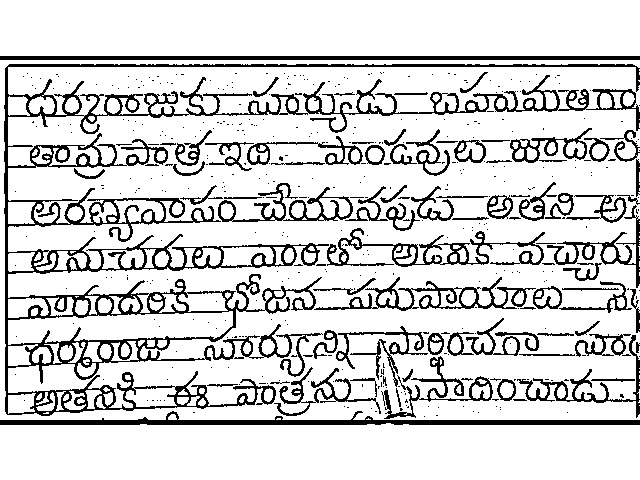 ధర్మరాజుకు సూర్యుడు బహుమతిగా
తామ్రపాత్ర ఇది. పాండవులు జూదంలో
అరణ్యవాసం చేయునపుడు అతని
అనుచరులు వారితో అడవికి వచ్చారు
వారందరికి భోజన సదుపాయాలు
ధర్మరాజు సూర్యున్ని ప్రార్థించగా
అతనికి ఈ పాత్రను ప్రసాదించాడు.